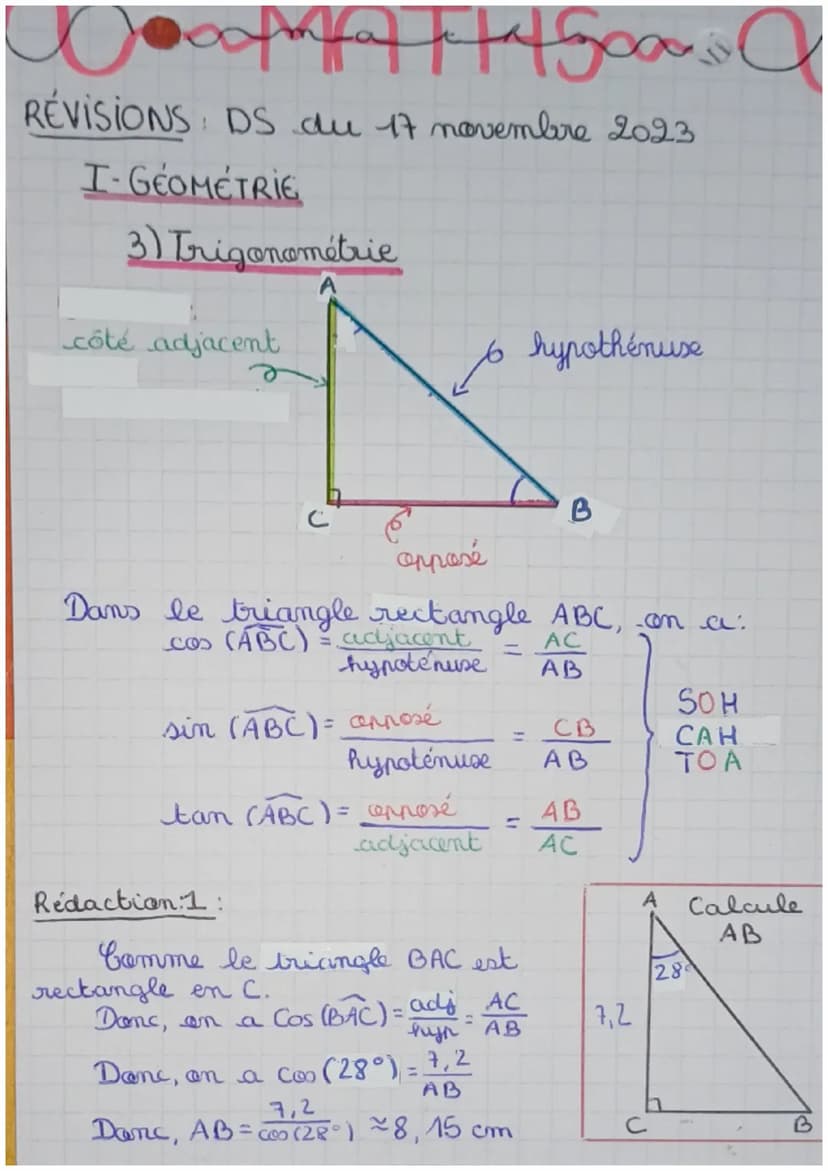 MATHS
RÉVISIONS : DS du 17 novembre 2023
I-GÉOMÉTRIE
3) Trigonométrie
A
côté adjacent
hypothénuse
C
B
opposé
Dans le triangle rectangle ABC, on a:
cos (ABC) = adjacent / hypoténuse = AC / AB
sin (ABC) = opposé / hypoténuse = CB / AB
tan (ABC) = opposé / adjacent = AB / AC
SOH
CAH
TOA
Rédaction:1 :
Comme le triangle BAC est
rectangle en C.
Donc, on a Cos (BAC) = adj / hyp = AC / AB
Donc, on a cos (28°) = 7,2 / AB
Donc, AB = 7,2 / cos (28°) ≈ 8,15 cm
A Calcule
AB
28°
7,2
C
B